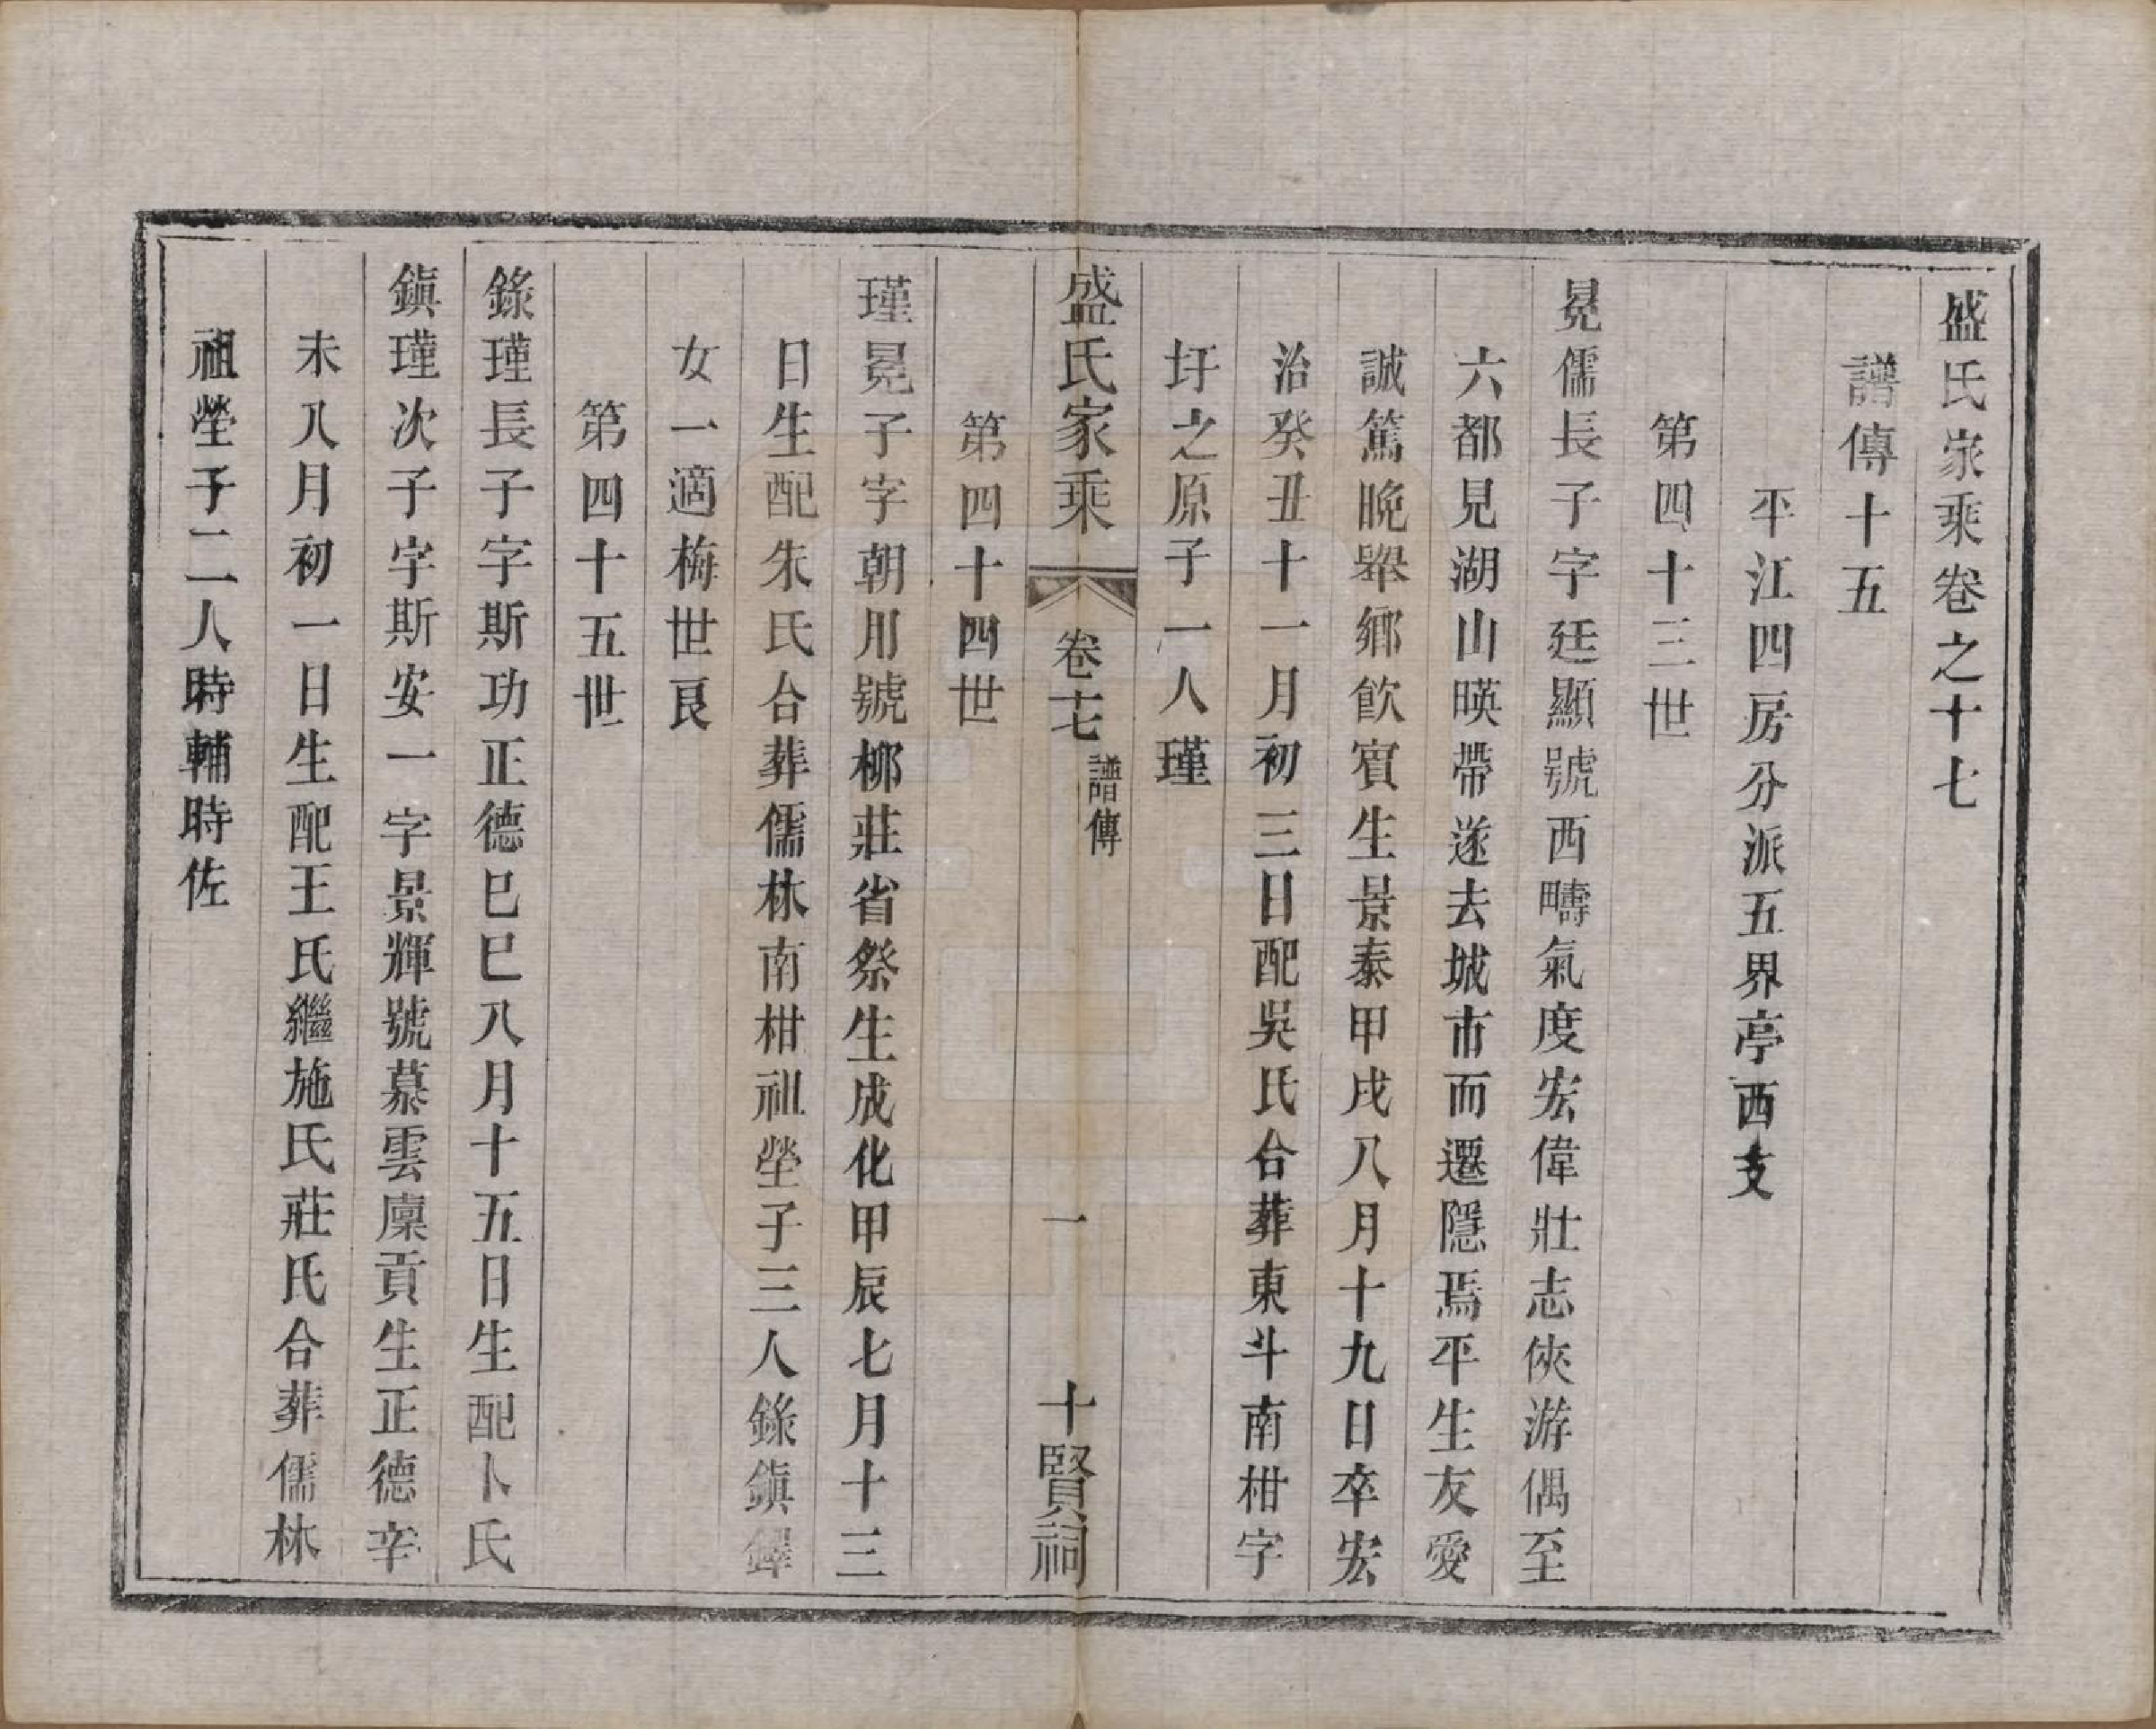 盛氏家乘卷之十七
譜傳十五
平江四房分派五界亭西支
第四十三世
冕儒長子字廷顯號西疇氣度宏偉壯志俠游偶至
六都見湖山暎帶遂去城市而遷隱焉平生友愛
誠篤晩舉鄉飮賓生景泰甲戌八月十九日卒宏
治癸丑十一月初三日配吳氏合葬東斗南柑字
圩之原子一人瑾
盛氏家乘
卷十七
譜傳
一
十賢祠
第四十四世
瑾冕子字朝用號柳莊省祭生成化甲辰七月十三
日生配朱氏合葬儒林南柑祖塋子三人錄鎭鐸
女一適梅世良
第四十五世
錄瑾長子字斯功正德巳巳八月十五日生配卜氏
鎭瑾次子字斯安一字景輝號慕雲廩貢生正德辛
未八月初一日生配王氏繼施氏莊氏合葬儒林
祖塋子二人時輔時佐